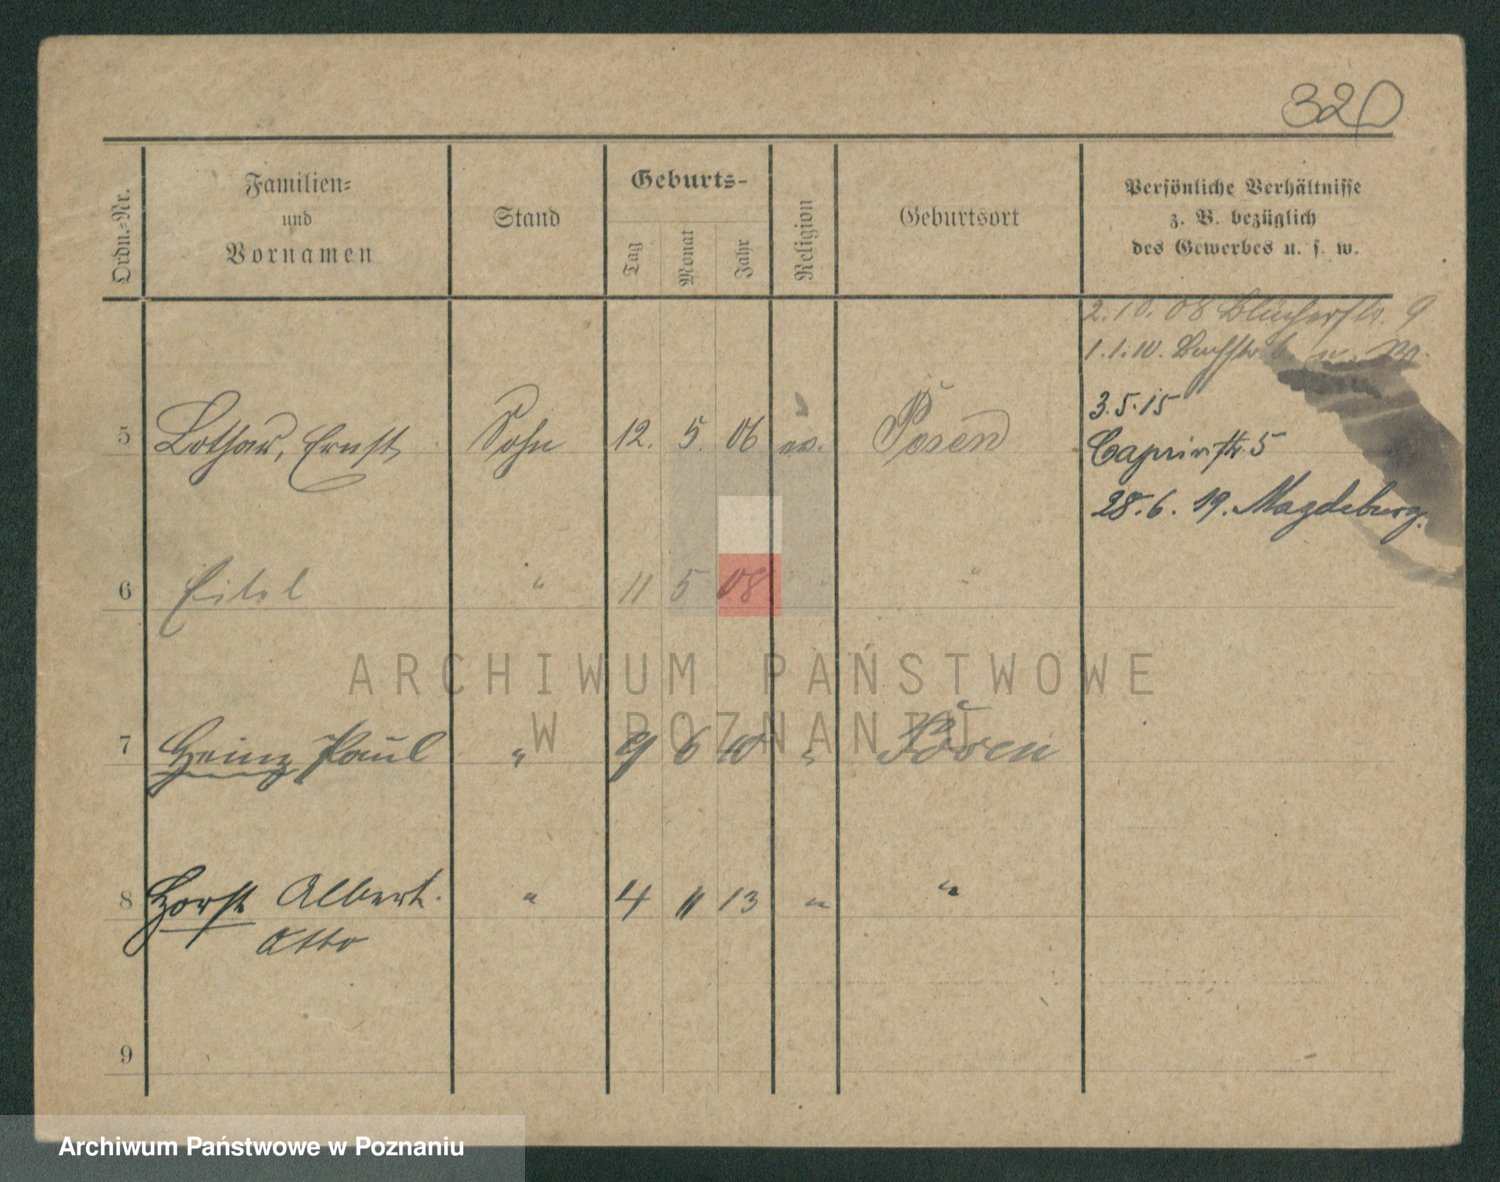 320
Ordn.-Nr.
Familien-
und
Vornamen
Stand
Geburts-
Tag
Monat
Jahr
Religion
Geburtsort
Persönliche Verhältnisse
z. B. bezüglich
des Gewerbes u. s. w.
2.10.08 Blücherstr. 9
1.1.10.
3.5.15
5 Lothar, Ernst Sohn 12. 5. 06 ev. Posen
Caprivistr. 5
28.6.19. Magdeburg.
6 Eitel " 11 5 08 " "
ARCHIWUM PAŃSTWOWE
W POZNANIU
7 Heinz Paul " 9 6 10 " Posen
8 Horst Albert. " 4 11 13 " "
Otto
9
Archiwum Państwowe w Poznaniu